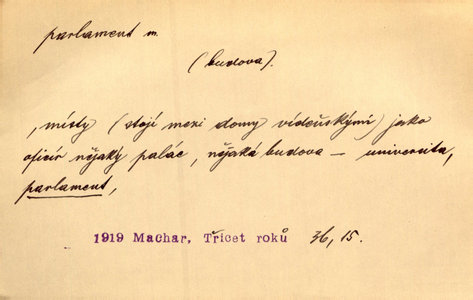 parlament m.
(budova).
, místy (stojí mezi domy vídeňskými) jako
oficír nějaký palác, nějaká budova – universita,
parlament,
1919 Machar, Třicet roků 36, 15.